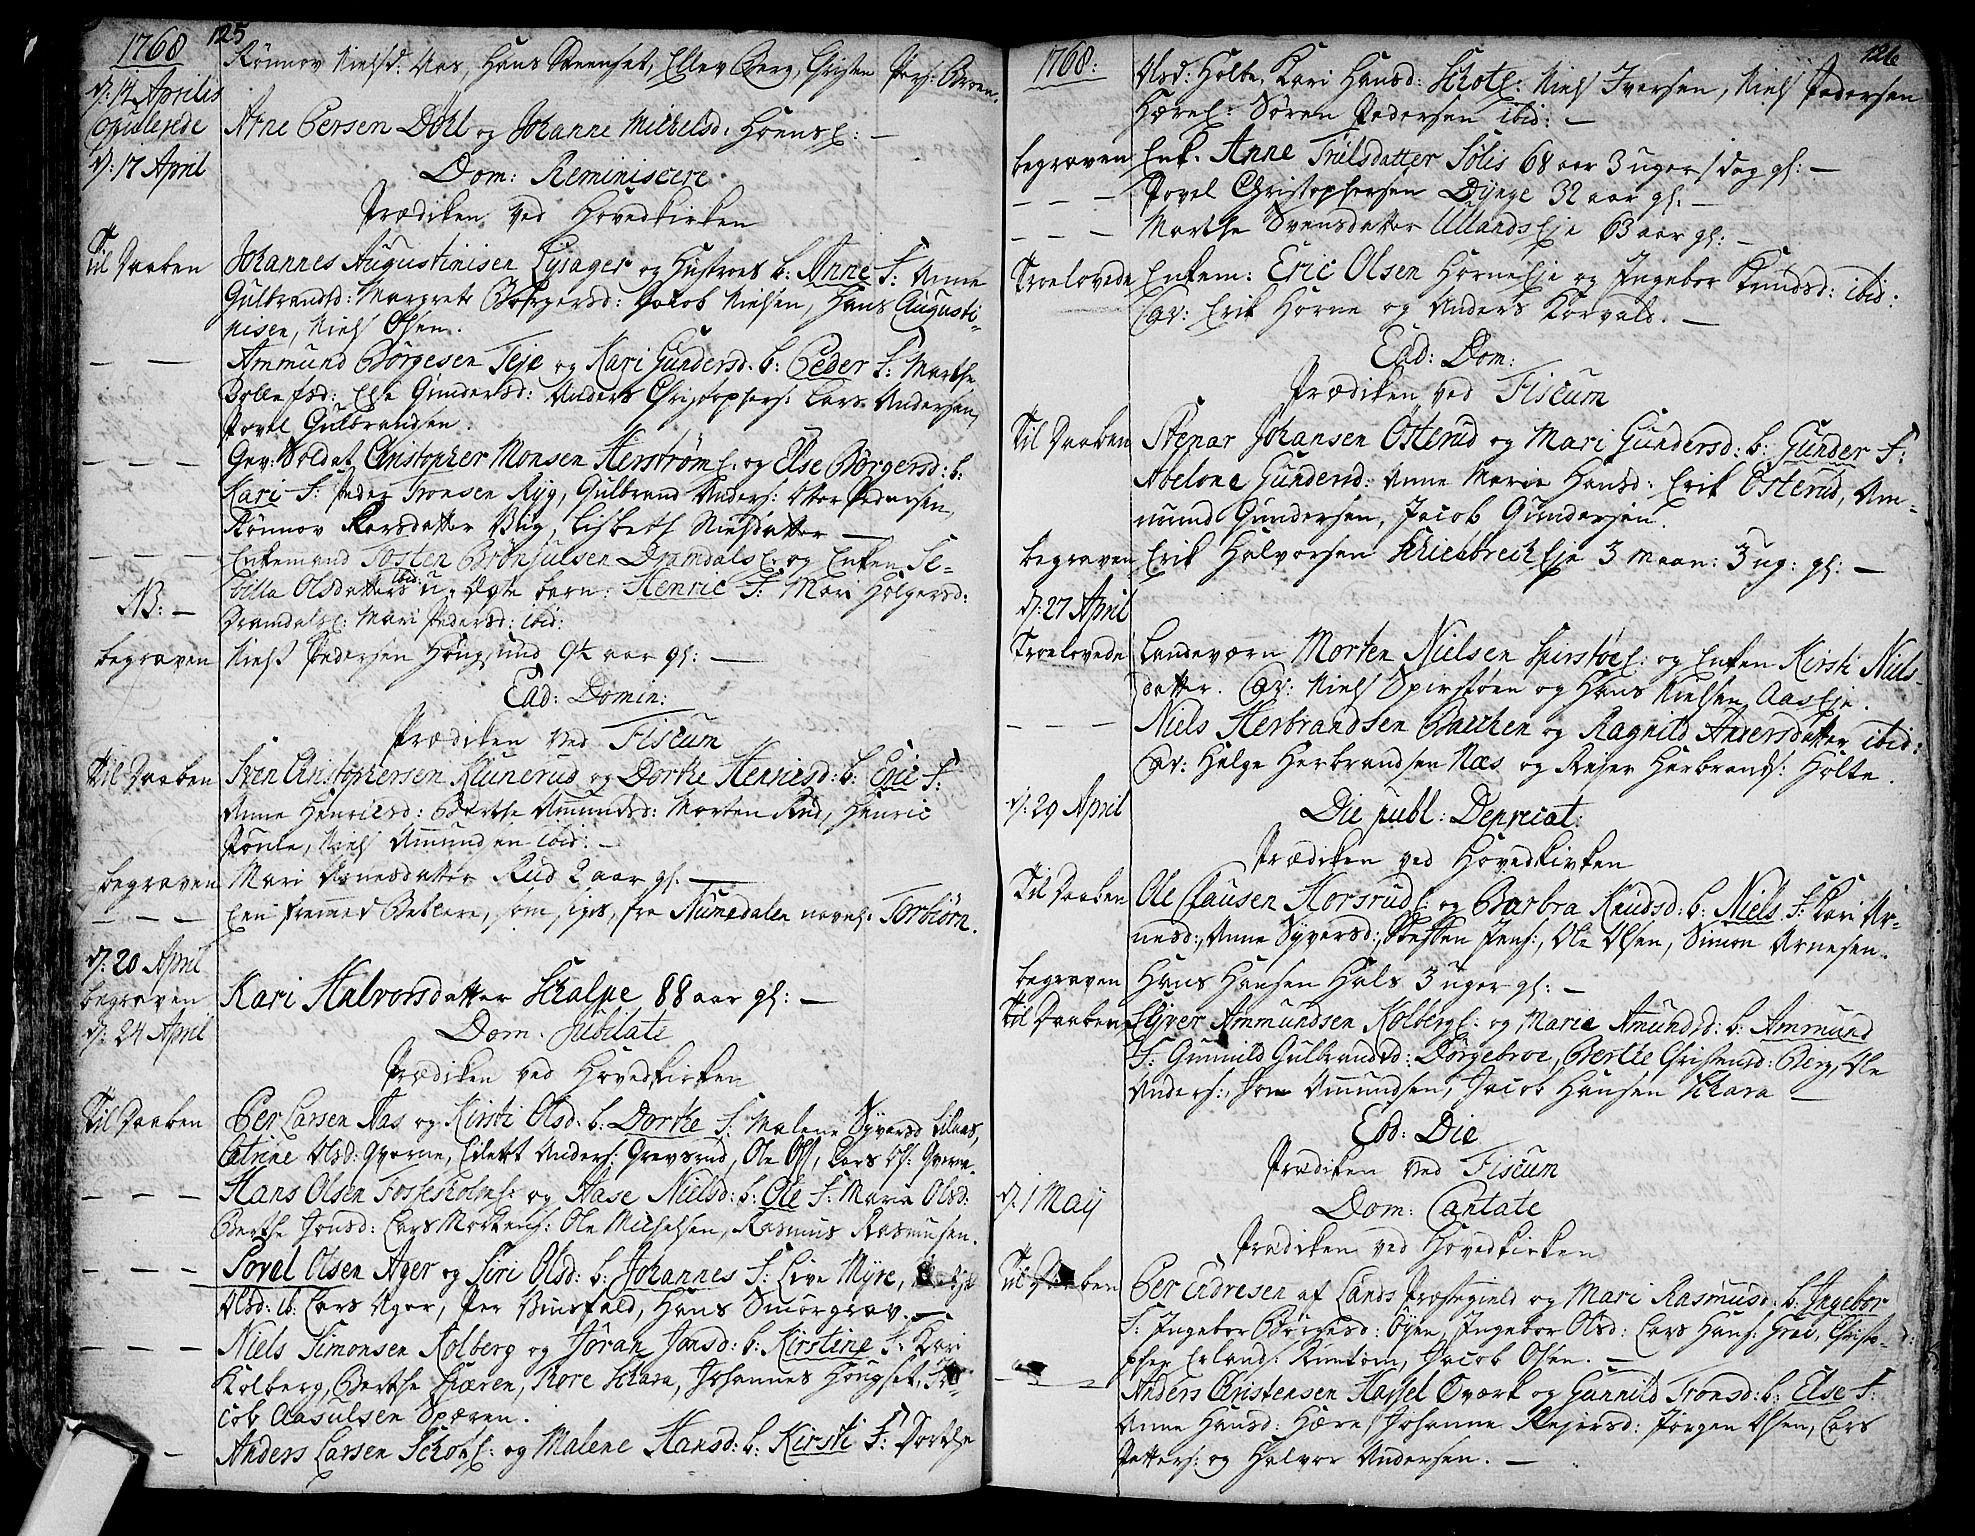 1768 125
Rönnov Nielsd: Aas, Hans Steenset, Ellev Berg, Christen Pers: Broen.
D: 14 Aprilis
Copulerede Arne Persen Dohl og Johanne Michelsd: Hoenss: —
D: 17 April Dom: Reminiscere.
Prædiken ved Hovedkirken
Til Daaben Johannes Augustinisen Lysager og Hustroes b: Anne F: Anne
Gulbrandsd: Margrete Borgersd: Jacob Nielsen, Hans Augusti-
nisen, Niels Olsen.
— — Ammund Börgesen Teje og Kari Gundersd: b: Peder F: Marthe
Else Gundersd: Anders Christophers: Lars Andersen,
Povel Gulbrandsen.
— — — Gev: Soldat Christopher Monsen Herström E: og Else Börgersd: b:
Kari F: Peder Tronsen Ryg, Gulbrand Anders: Pedersen,
Rönnov Larsdatter Lisbeth Nielsdatter —
— — — Enkemand Tosten Brönjulsen Dramdals E: og Enken Se-
NB: — billa Olsdatters ibid: u-Ægte barn: Henric F: Mari Holgersd:
Dramdals E: Mari Pedersd: ibid:
begraven Niels Pedersen Hougsund 9½ aar gl: —
Ead: Domin:
Prædiken ved Fiscum
Til Daaben Sven Christophersen Klunerud og Dorthe Henricsd: b: Eric F:
Anne Henricsd: Berthe Amundsd: Morten Rud, Henric
Niels Amundsen ibid: —
begraven Mari Arnesdatter Rud 2 aar gl. —
— — — Een fremmed Betlere, som siges, fra Numedalen navnl: Torbiörn.
D: 20 April
begraven Kari Halvorsdatter Schalpe 88 aar gl: —
D: 24 April Dom. Jubilate
Prædiken ved Hovedkirken
Til Daaben Per Larsen Aas og Kirsti Olsd: b: Dorthe F: Malene Syversd
Catrine Olsd: Qverne, Anders: Grevsrud, Ole Ols:, Lars Ols: Qverne.
— — — Hans Olsen Foskesholm E: og Aase Nielsd: b: Ole F: Maria Olsd:
Berthe Jonsd: Lars Mortens: Ole Michelsen, Rasmus Rasmusen.
— — — Povel Olsen Ager og Siri Olsd: b: Johannes F: Live Myre,
Olsd: ib: Lars Ager, Per Hans Smörgrav. —
— — — Niels Simonsen Kolberg og Jöran Jonsd: b: Kirstine F: Kari
Kolberg, Berthe Tore Schara, Johannes Hougset, Ja-
cob Aasulsen Spæren.
— Anders Larsen Schots E: og Malene Hansd: b: Kirsti F: Dorthe
1768: 126
Olsd: Holte, Kari Hansd: Schots E: Niels Iversen, Niels Pedersen
Hære E: Sören Pedersen ibid: —
begraven Enk. Anne Trulsdatter Sölis 68 aar 3 uger 1 dag gl: —
— — — Povel Christophersen Dynge 32 aar gl. —
— — — Marthe Svensdatter Ullands Eje 63 aar gl: —
Troelovede Enkem: Eric Olsen Horne Eje og Ingebor Knudsd: ibid:
Cav: Erik Horne og Anders Korvald. —
Ead: Dom:
Prædiken ved Fiscum
Til Daaben Stenar Johansen Österud og Mari Gundersd: b: Gunder F:
Abelone Gundersd: Anne Marie Hansd: Erik Österud, Am-
mund Gundersen, Jacob Gundersen.
begraven Erik Halvorsen Eje 3 maan: 3 ug: gl: —
D: 27 April
Troelovede Landeværn Morten Nielsen Spirstöe E: og Enken Kirsti Niels-
datter. Cav: Niels Spirstöen og Hans Nielsen Aas Eje.
— — — Niels Herbrandsen Bacchen og Ragnild Andersdatter ibid:
Cav: Helge Herbrandsen Næs og Reier Herbrands: Holte.
D: 29 April Die publ: Deprecat:
Prædiken ved Hovedkirken
Til Daaben Ole Clausen Horsrud E: og Barbra Knudsd: b: Niels F: Kari Ar-
nesd:, Anne Syversd:, Steffen Jens:, Ole Olsen, Simon Arnesen.
begraven Hans Hansen Hals 3 uger gl: —
Til Daaben Syver Ammundsen Kolberg E: og Marie Amundsd: b: Ammund
F: Gunnild Gulbrandsd: Dörgebroe, Berthe Christensd: Berg, Ole
Anders:, Amundsen, Jacob Hansen Schara —
Eod: Die
Prædiken ved Fiscum
D: 1 Maij Dom: Cantate
Prædiken ved Hovedkirken
Til Daaben Per Endresen af Lands Præstegield og Mari Rasmusd: b: Ingebor
F: Ingebor Börgesd: Öyen, Ingebor Olsd: Lars Hans: Christo-
pher Erlands: Jacob Olsen. —
— — Anders Christensen Hassel Værk og Gunnild Tronsd: b: Else F:
Anne Hansd: Hære, Johanne Reiersd: Jörgen Olsen, Lars
Petters: og Halvor Andersen. —